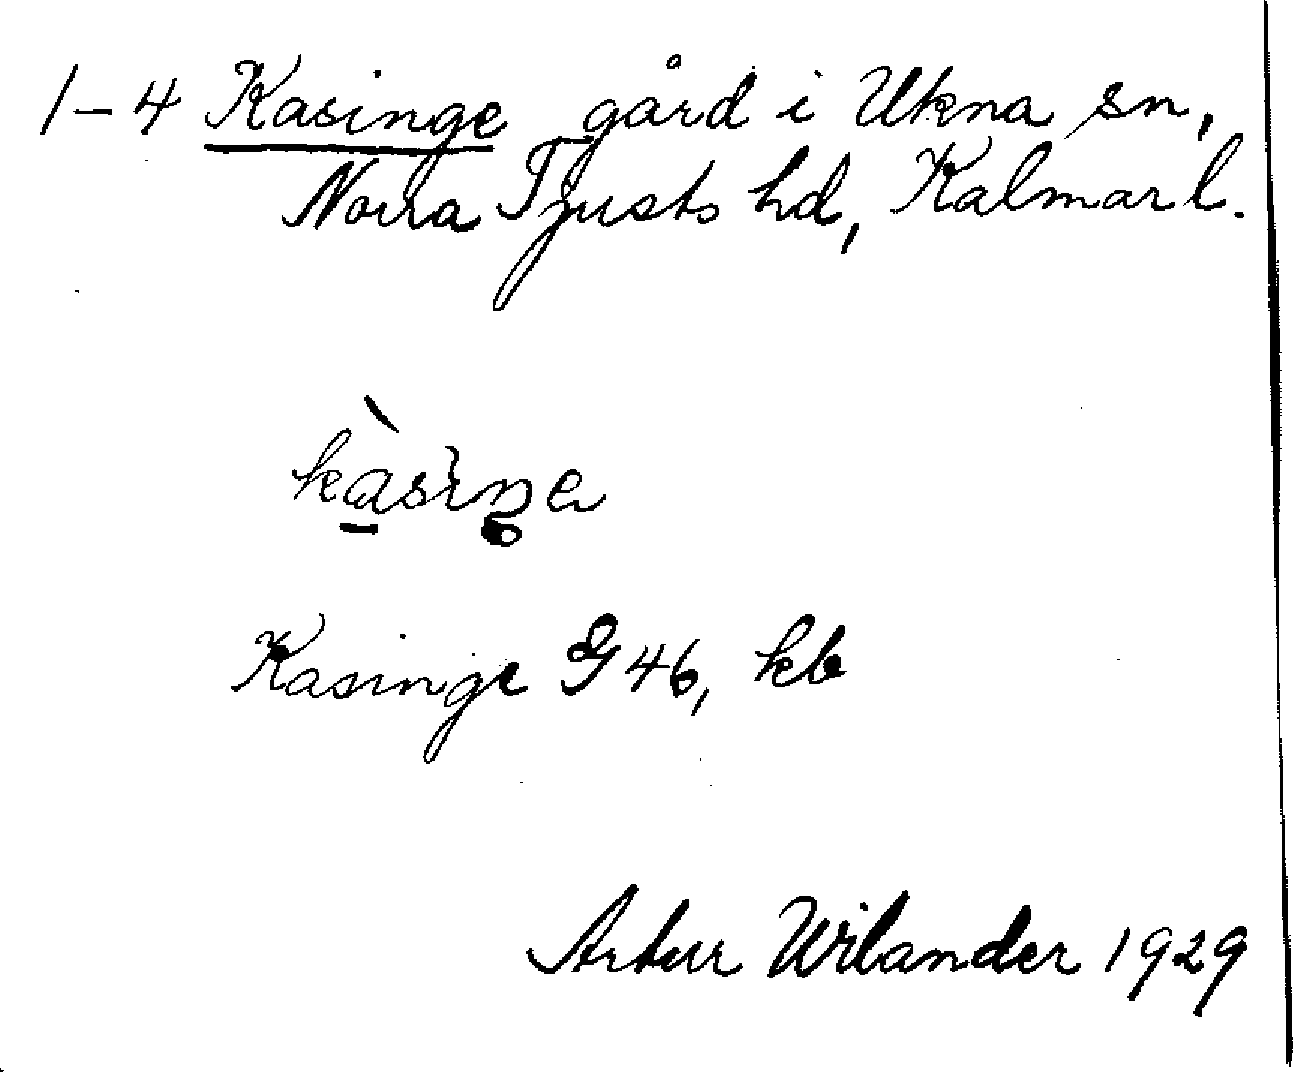 1-4 Kasinge gård i Ukna sn,
Norra Tjusts hd, Kalmar l.
kàsiŋe
Kasinge G 46, kb
Artur Wilander 1929